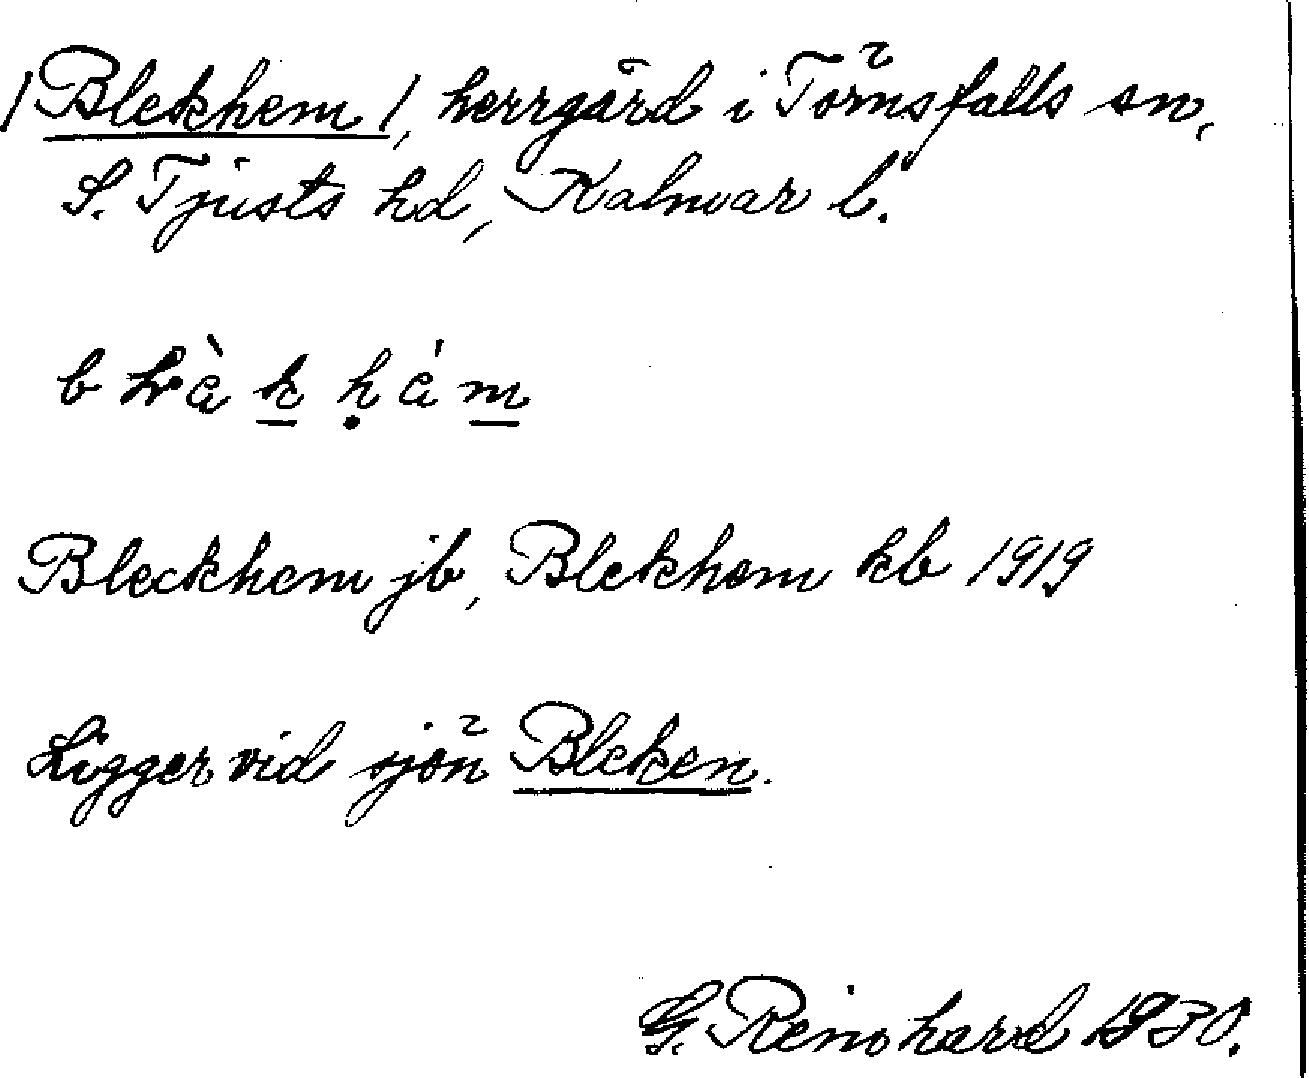 /Blekhem/, herrgård i Törnsfalls sn,
S. Tjusts hd, Kalmar l.
Bleckhem jb, Blekhem kb 1919
Ligger vid sjön Bleken.
G. Reinhard 1930.